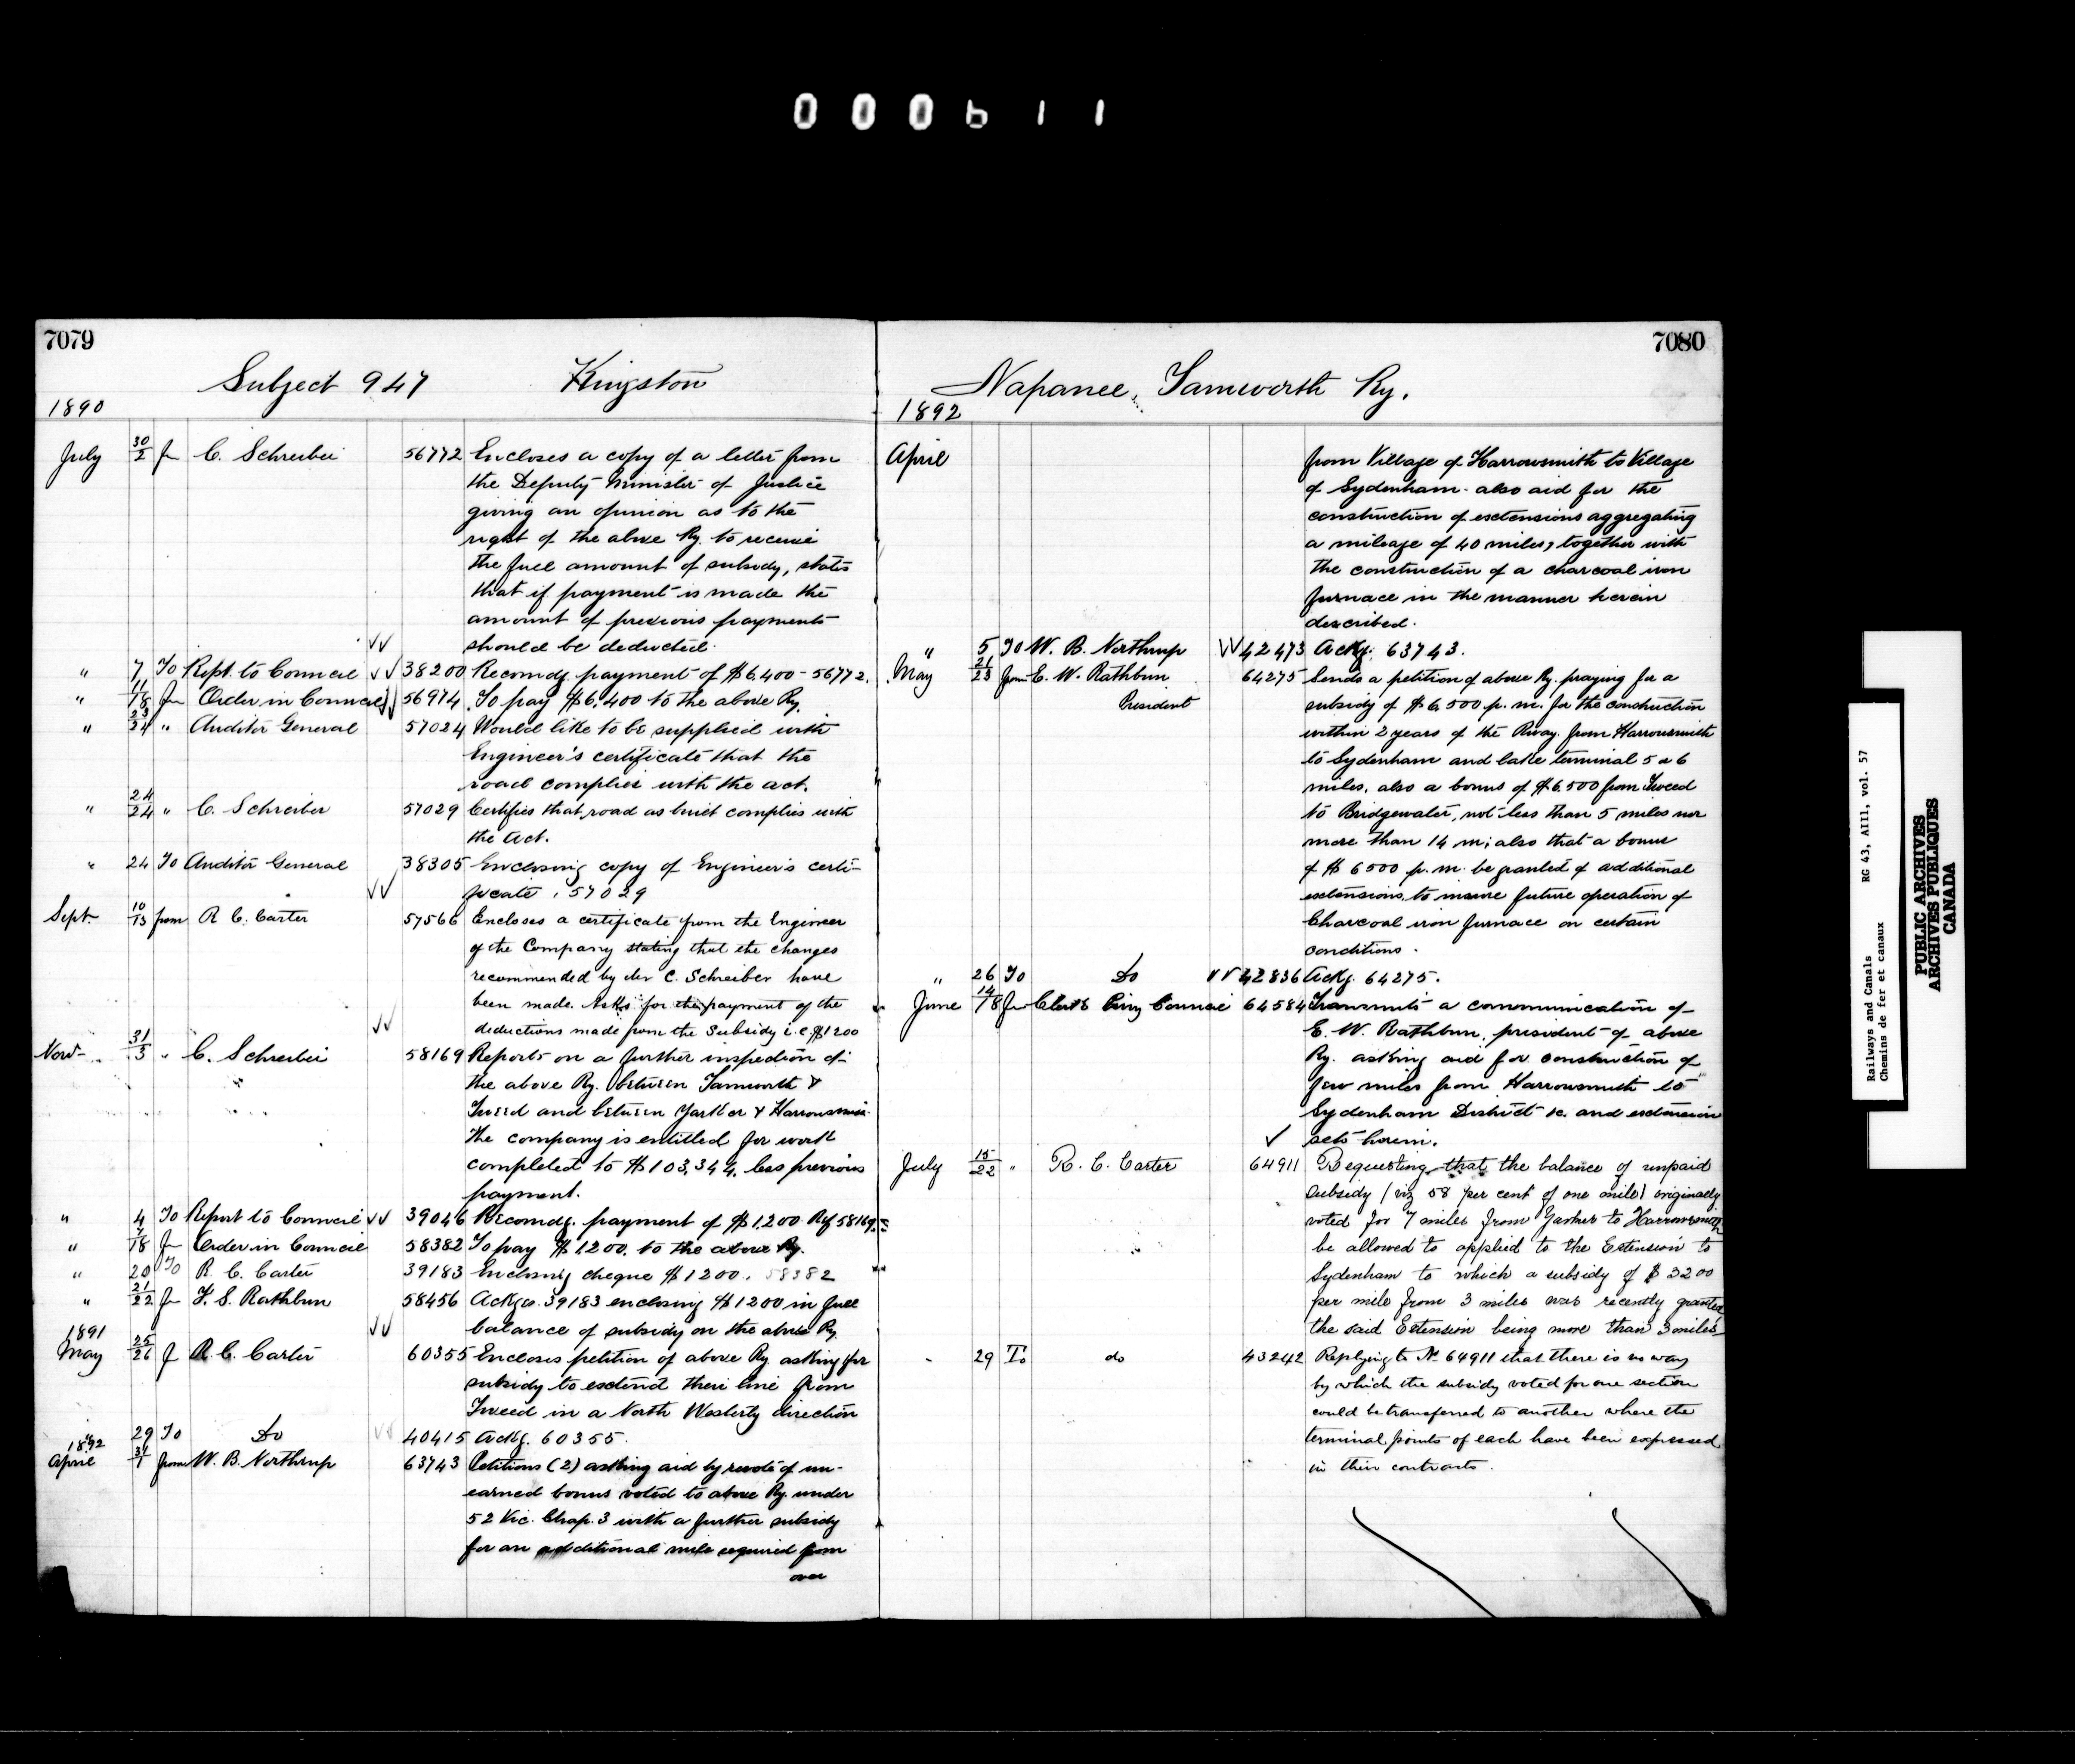 000611
7079
Subject 947 Kingston
1890
July 30/2 fr C. Schreiber 56772 Encloses a copy of a letter from
the Deputy Minister of Justice
giving an opinion as to the
right of the above Ry. to receive
the full amount of subsidy, states
that if payment is made the
amount of previous payments
should be deducted.
" 7 To Rept. to Council 38200 Recomdg. payment of $6,400 - 56772.
" 11/18 fr Order in Council 56974 To pay $6,400 to the above Ry.
" 23/24 " Auditor General 57024 Would like to be supplied with
Engineer's certificate that the
road complies with the act.
" 24/24 " C. Schreiber 57029 Certifies that road as built complies with
the Act.
" 24 To Auditor General 38305 Enclosing copy of Engineer's certi-
ficate, 57029
Sept. 10/13 from R C. Carter 57566 Encloses a certificate from the Engineer
of the Company stating that the changes
recommended by Mr C. Schreiber have
been made. Asks for the payment of the
deductions made from the Subsidy i.e. $1200
Nov. 31/3 " C. Schreiber 58169 Reports on a further inspection of
the above Ry. between Tamworth &
Tweed and between Yarker & Harrowsmith.
The company is entitled for work
completed to $103,344. less previous
payment.
" 4 To Report to Council 39046 Recomdg. payment of $1,200. Ref 58169.
" 7/18 fr Order in Council 58382 To pay $1200. to the above Ry.
" 20 To R. C. Carter 39183 Enclosing cheque $1200. 58382
" 21/22 fr F. S. Rathbun 58456 Ackgs. 39183 enclosing $1200 in full
balance of subsidy on the above Ry.
1891
May 25/26 f R. C. Carter 60355 Encloses petition of above Ry asking for
subsidy to extend their line from
Tweed in a North Westerly direction
" 29 To Do 40415 Ackg. 60355.
1892
April 31/1 from W. B. Northrup 63743 Petitions (2) asking aid by revote of un-
earned bonus voted to above Ry. under
52 Vic. Chap. 3 with a further subsidy
for an additional mile required from
over
7080
Napanee, Tamworth Ry.
1892
April from Village of Harrowsmith to Village
of Sydenham. also aid for the
construction of extensions aggregating
a mileage of 40 miles, together with
the construction of a charcoal iron
furnace in the manner herein
described.
" 5 To W. B. Northrup 42473 Ackg. 63743.
May 21/23 from E. W. Rathbun 64275 Sends a petition of above Ry. praying for a
President subsidy of $6,500 p. m. for the construction
within 2 years of the Rway. from Harrowsmith
to Sydenham and lake terminal 5 a 6
miles, also a bonus of $6,500 from Tweed
to Bridgewater, not less than 5 miles nor
more than 14 m; also that a bonus
of $6500 p. m. be granted of additional
extensions, to insure future operation of
Charcoal iron furnace on certain
conditions.
" 26 To Do 42836 Ackg. 64275.
June 14/18 fr Clerk Privy Council 64584 Transmits a communication of
E. W. Rathbun, president of above
Ry. asking aid for construction of
few miles from Harrowsmith to
Sydenham District &c. and extension
sets herein.
July 15/22 " R. C. Carter 64911 Requesting that the balance of unpaid
Subsidy (viz 58 per cent of one mile) originally
voted for 7 miles from Yarker to Harrowsmith
be allowed to applied to the Extension to
Sydenham to which a subsidy of $3200
per mile from 3 miles was recently granted
the said Extension being more than 3 miles
" 29 To do 43242 Replying to No 64911 that there is no way
by which the subsidy voted for one section
could be transferred to another where the
terminal points of each have been expressed
in their contracts.
Railways and Canals RG 43, AIII, vol. 57
Chemins de fer et canaux
PUBLIC ARCHIVES
ARCHIVES PUBLIQUES
CANADA